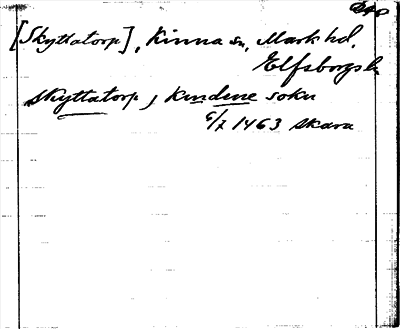 [Skyttatorp], Kinna sn, Mark hd,
Elfsborgs l.
skyttatorp, kindene sokn
6/7 1463 Skara